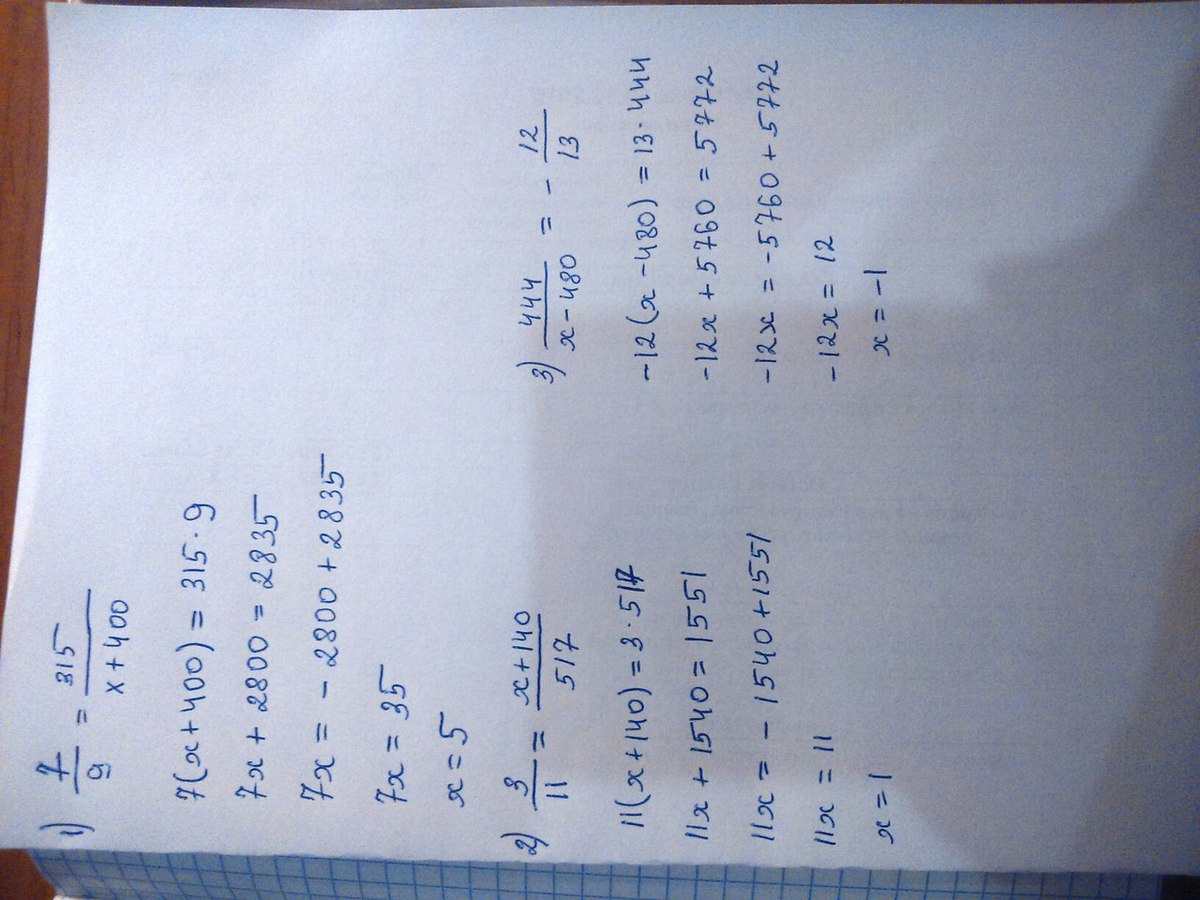 1) 7/9 = 315/(x+400)
7(x+400) = 315·9
7x + 2800 = 2835
7x = - 2800 + 2835
7x = 35
x = 5
2) 3/11 = (x+140)/517
11(x+140) = 3·517
11x + 1540 = 1551
11x = - 1540 + 1551
11x = 11
x = 1
3) 444/(x-480) = - 12/13
-12(x-480) = 13·444
-12x + 5760 = 5772
-12x = -5760 + 5772
-12x = 12
x = -1